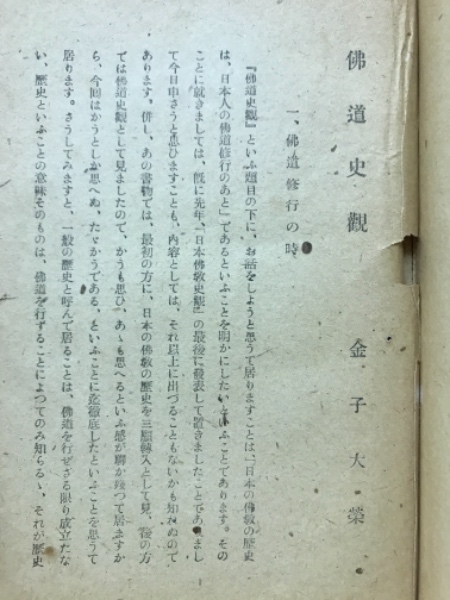 佛道史觀
金子大榮
一、佛道修行の時
『佛道史觀』といふ題目の下に、お話をしようと思うて居りますことは、「日本の佛敎の歷史
は、日本人の佛道修行のあと」であるといふことを明かにしたいといふことであります。その
ことに就きましては、既に先年、『日本佛敎史觀』の最後に發表して置きましたことでありまし
て今日申さうと思ひますことも、内容としては、それ以上に出づることもないかも知れぬので
あります。併し、あの書物では、最初の方に、日本の佛敎の歷史を三願轉入として見、後の方
では佛道史觀として見ましたので、かうも思ひ、あゝも思へるといふ感が聊か殘つて居ますか
ら、今回はかうとしか思へぬ、たゞかうである、といふことに迄徹底したといふことを思うて
居ります。さうしてみますと、一般の歷史と呼んで居ることは、佛道を行ぜざる限り成立たな
い、歷史といふことの意味そのものは、佛道を行ずることによつてのみ知らるゝ、それが歷史
1